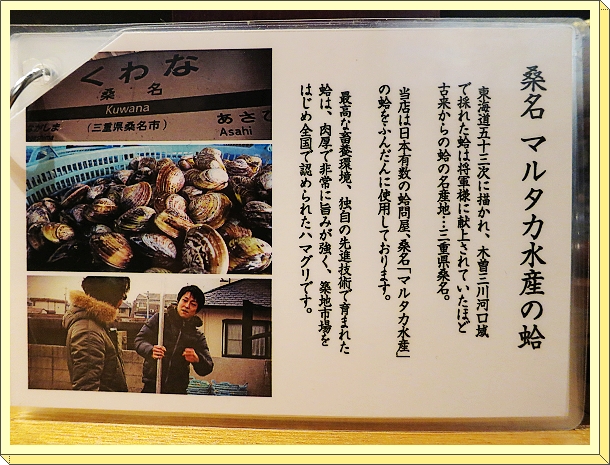 桑名 マルタカ水産の蛤
東海道五十三次に描かれ、木曽三川河口域
で採れた蛤は将軍様に献上されていたほど
古来からの蛤の名産地…三重県桑名。
当店は日本有数の蛤問屋、桑名「マルタカ水産」
の蛤をふんだんに使用しております。
最高な畜養環境、独自の先進技術で育まれた
蛤は、肉厚で非常に旨みが強く、築地市場を
はじめ全国で認められたハマグリです。
くわな
桑名
Kuwana
(三重県桑名市)
あさ
Asahi